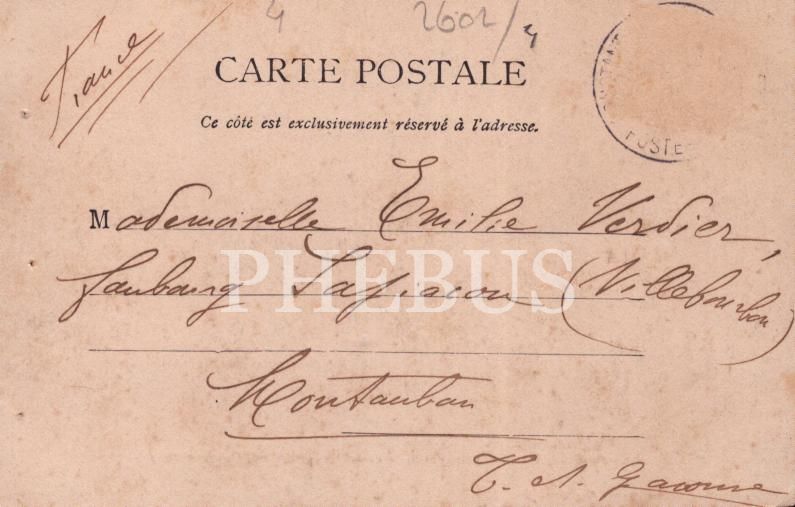 4
2602/4
France
CARTE POSTALE
Ce côté est exclusivement réservé à l'adresse.
POSTE
Mademoiselle Emilie Verdier,
faubourg Lapiacou (Villebourbon)
PHEBUS
Montauban
T. et Garonne